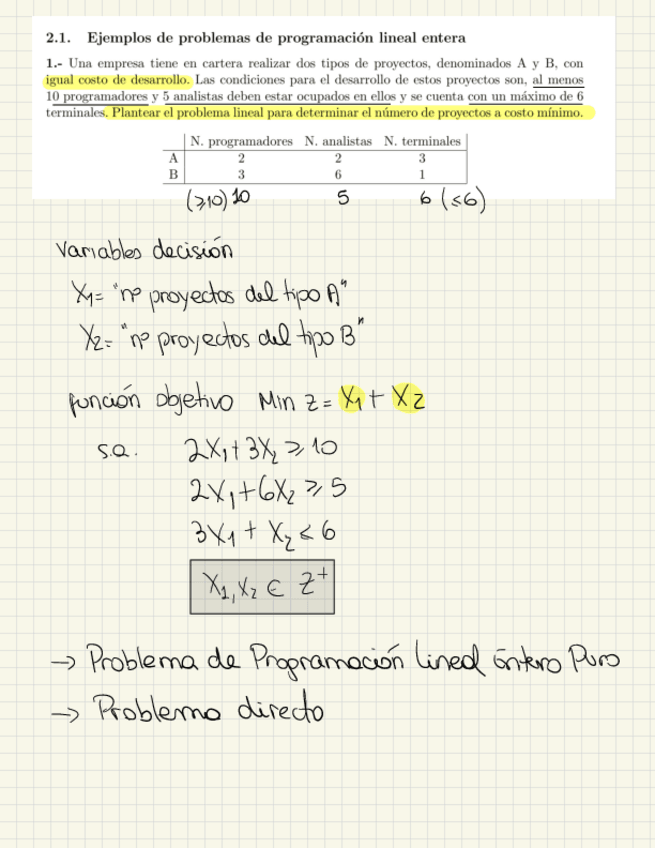 2.1. Ejemplos de problemas de programación lineal entera
1.- Una empresa tiene en cartera realizar dos tipos de proyectos, denominados A y B, con
igual costo de desarrollo. Las condiciones para el desarrollo de estos proyectos son, al menos
10 programadores y 5 analistas deben estar ocupados en ellos y se cuenta con un máximo de 6
terminales. Plantear el problema lineal para determinar el número de proyectos a costo mínimo.
N. programadores N. analistas N. terminales
A 2 2 3
B 3 6 1
(≥10) 10 5 6 (≤6)
Variables decisión
X1= "nº proyectos del tipo A"
X2= "nº proyectos del tipo B"
función objetivo Min z = X1 + X2
s.a. 2X1 + 3X2 ≥ 10
2X1 + 6X2 ≥ 5
3X1 + X2 ≤ 6
X1, X2 ∈ Z+
→ Problema de Programación Lineal Entero Puro
→ Problema directo